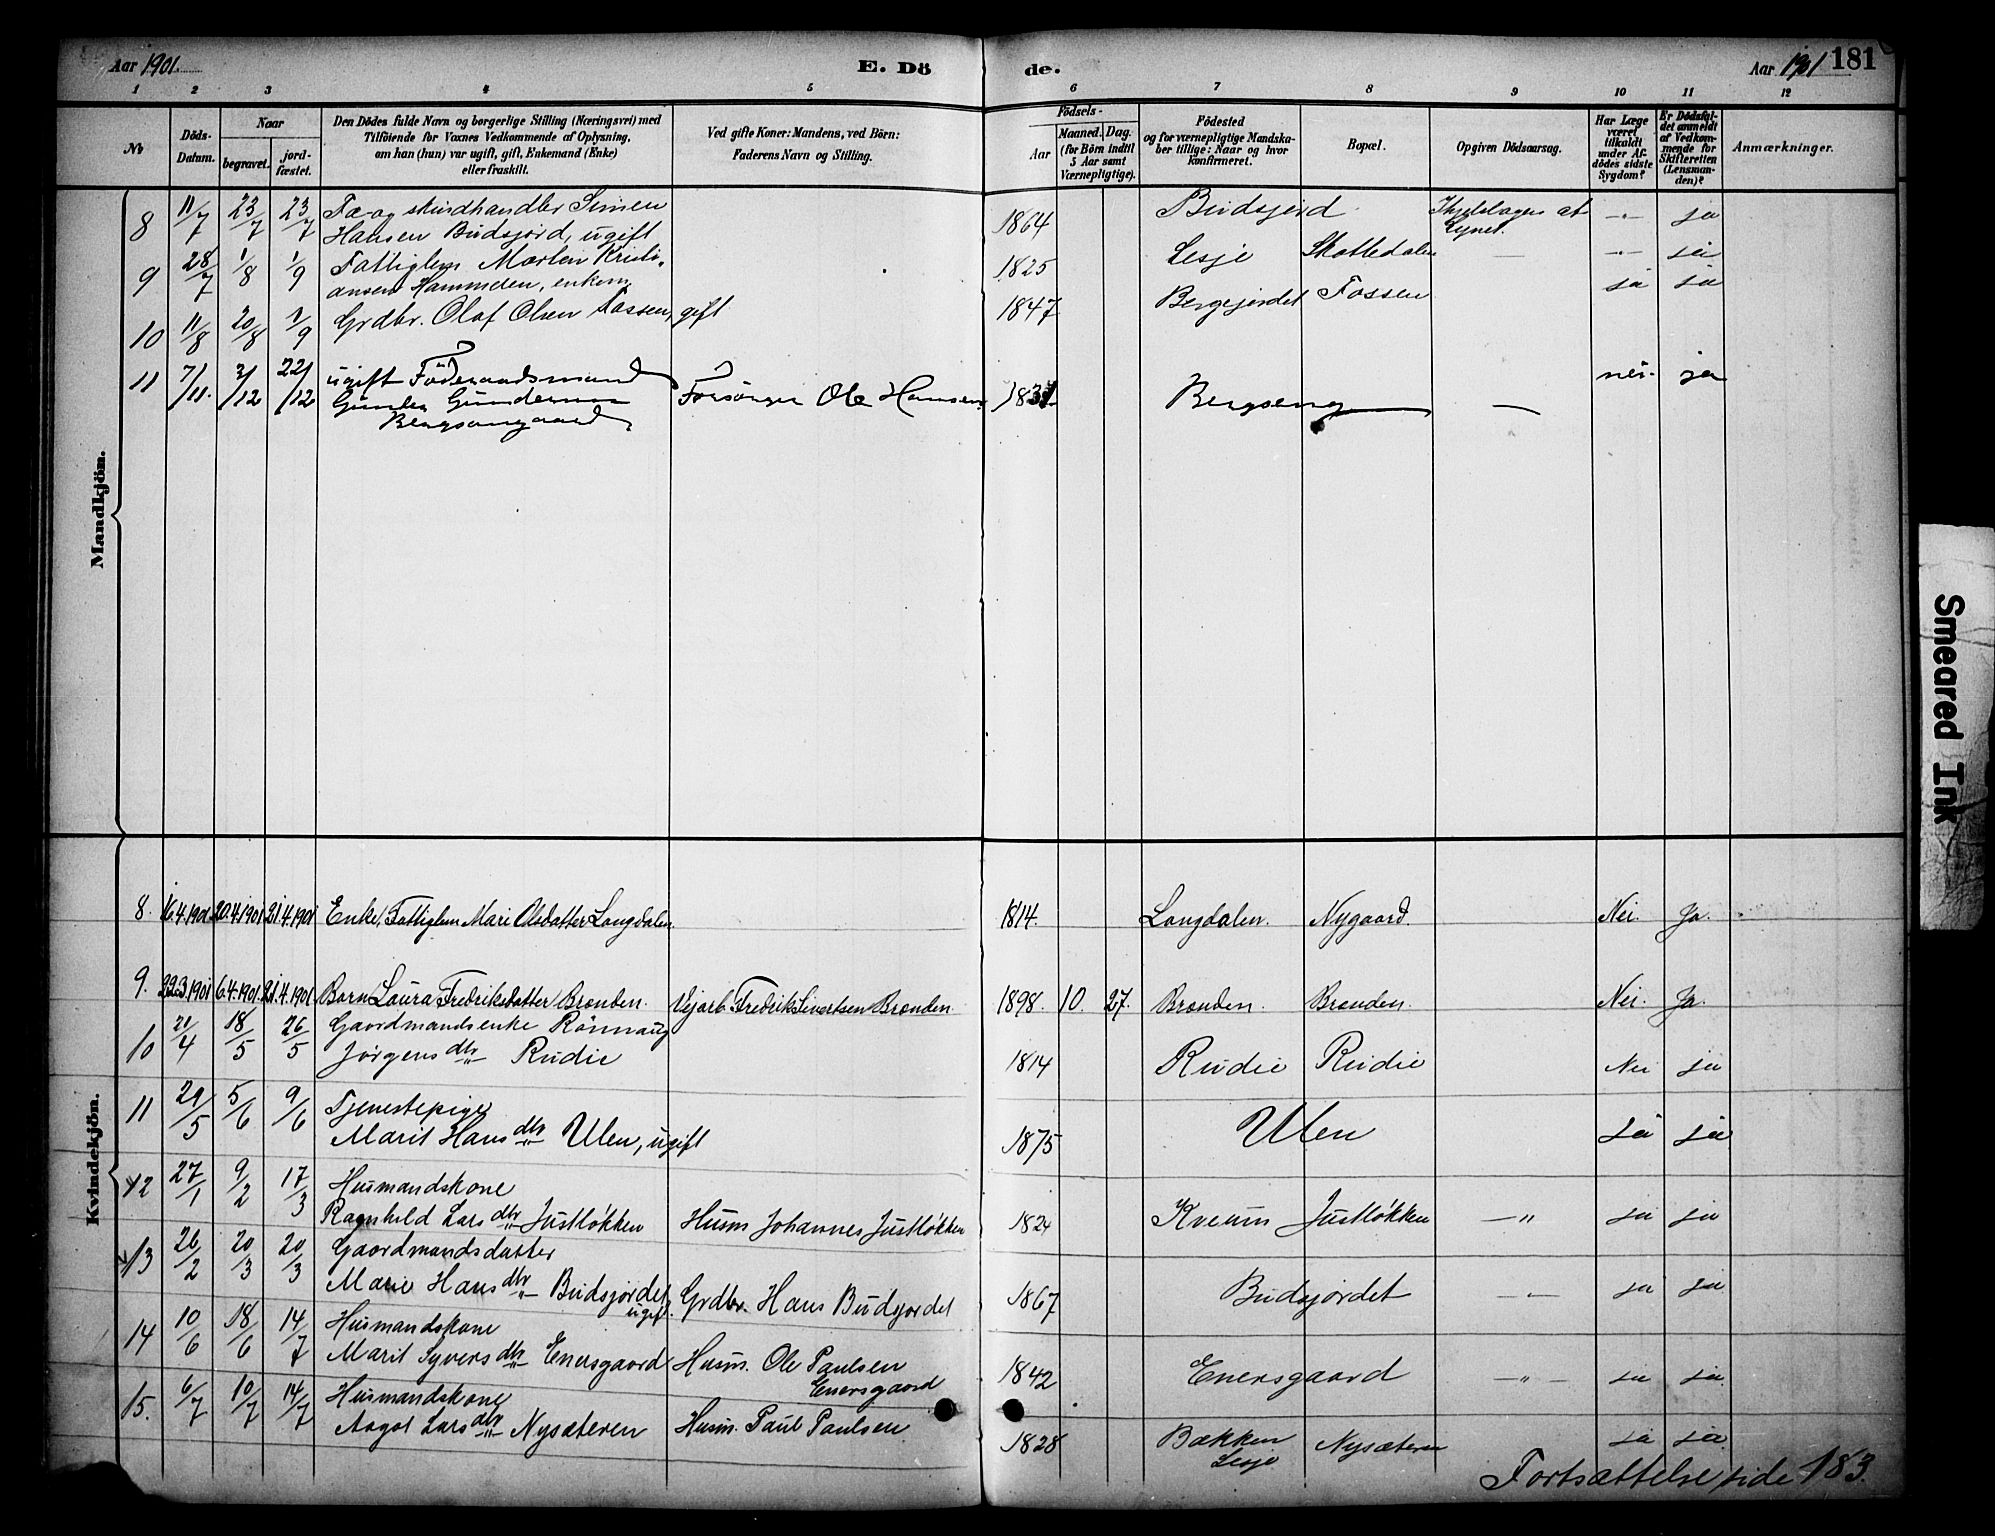 Aar 1901.
E. Dö
de.
Aar 1901
181
1 2 3 4 5 6 7 8 9 10 11 12
No
Döds-
Datum.
Naar
begravet.
jord-
fæstet.
Den Dödes fulde Navn og borgerlige Stilling (Næringsvei) med
Tilföiende for Voxnes Vedkommende af Oplysning,
om han (hun) var ugift, gift, Enkemand (Enke)
eller fraskilt.
Ved gifte Koner: Mandens, ved Börn:
Faderens Navn og Stilling.
Födsels-
Aar
Maaned. Dag.
(for Börn indtil
5 Aar samt
Værnepligtige).
Födested
og for værnepligtige Mandska-
ber tillige: Naar og hvor
konfirmeret.
Bopæl.
Opgiven Dödsaarsag.
Har Læge
været
tilkaldt
under Af-
dödes sidste
Sygdom?
Er Dödsfal-
det anmeldt
af Vedkom-
mende for
Skifteretten
(Lensman-
den)?
Anmærkninger.
Mandkjön.
8 11/7 23/7 23/7 Fæ- og skindhandler Simen
Hansen Budsjord, ugift 1864 Budsjord Ihjelslagen af
Lynet. -"- ja
9 28/7 1/8 1/9 Fattiglem Morten Kristi-
ansen Hammden, enkem. 1825 Lesje Skottedalen — -"- ja
10 11/8 20/8 1/9 Grdbr. Olaf Olsen Fossen, gift 1847 Bergejordet Fossen ja ja
11 7/11. 3/12 22/12 ugift Föderaadsmand
Gundersen
Forsörger Ole Hansen 1831 Bergseng — nei. ja
Kvindekjön.
8. 16.4.1901 20.4.1901 21.4.1901 Enke, Fattiglem Mari Olsdatter Langdalen. 1814. Langdalen. Nygaard. Nei. Ja.
9. 22.3.1901 6.4.1901 21.4.1901 Barn Laura Fredriksdatter Brænden. Vejarb. Fredrik Sivertsen Brænden. 1898. 10. 27. Brænden. Brænden. Nei. Ja.
10 21/4 18/5 26/5 Gaardmandsenke Rönnaug
Jörgensdtr Rudie 1814 Rudie Rudie Nei ja
11 29/5 5/6 9/6 Tjenestepige
Marit Hansdtr Ulen, ugift 1875 Ulen ja ja
12 27/1 9/2 17/3 Husmandskone
Ragnhild Larsdtr Justløkken Husm. Johannes Justløkken 1824 Kveum Justløkken —"— ja ja
13 26/2 20/3 20/3 Gaardmandsdatter
Marie Hansdtr Budsjordet
ugift. Grdbr. Hans Budsjordet 1867 Budsjordet —"— ja ja
14 10/6 18/6 14/7 Husmandskone
Marit Syversdtr Enersgaard Husm. Ole Paulsen
Enersgaard 1842 Enersgaard —"— ja ja
15. 6/7 10/7 14/7 Husmandskone
Aagot Larsdtr Nysæteren Husm. Paul Paulsen 1828 Bækken
Lesje Nysæteren ja ja
Fortsættelse side 183.
Smeared Ink